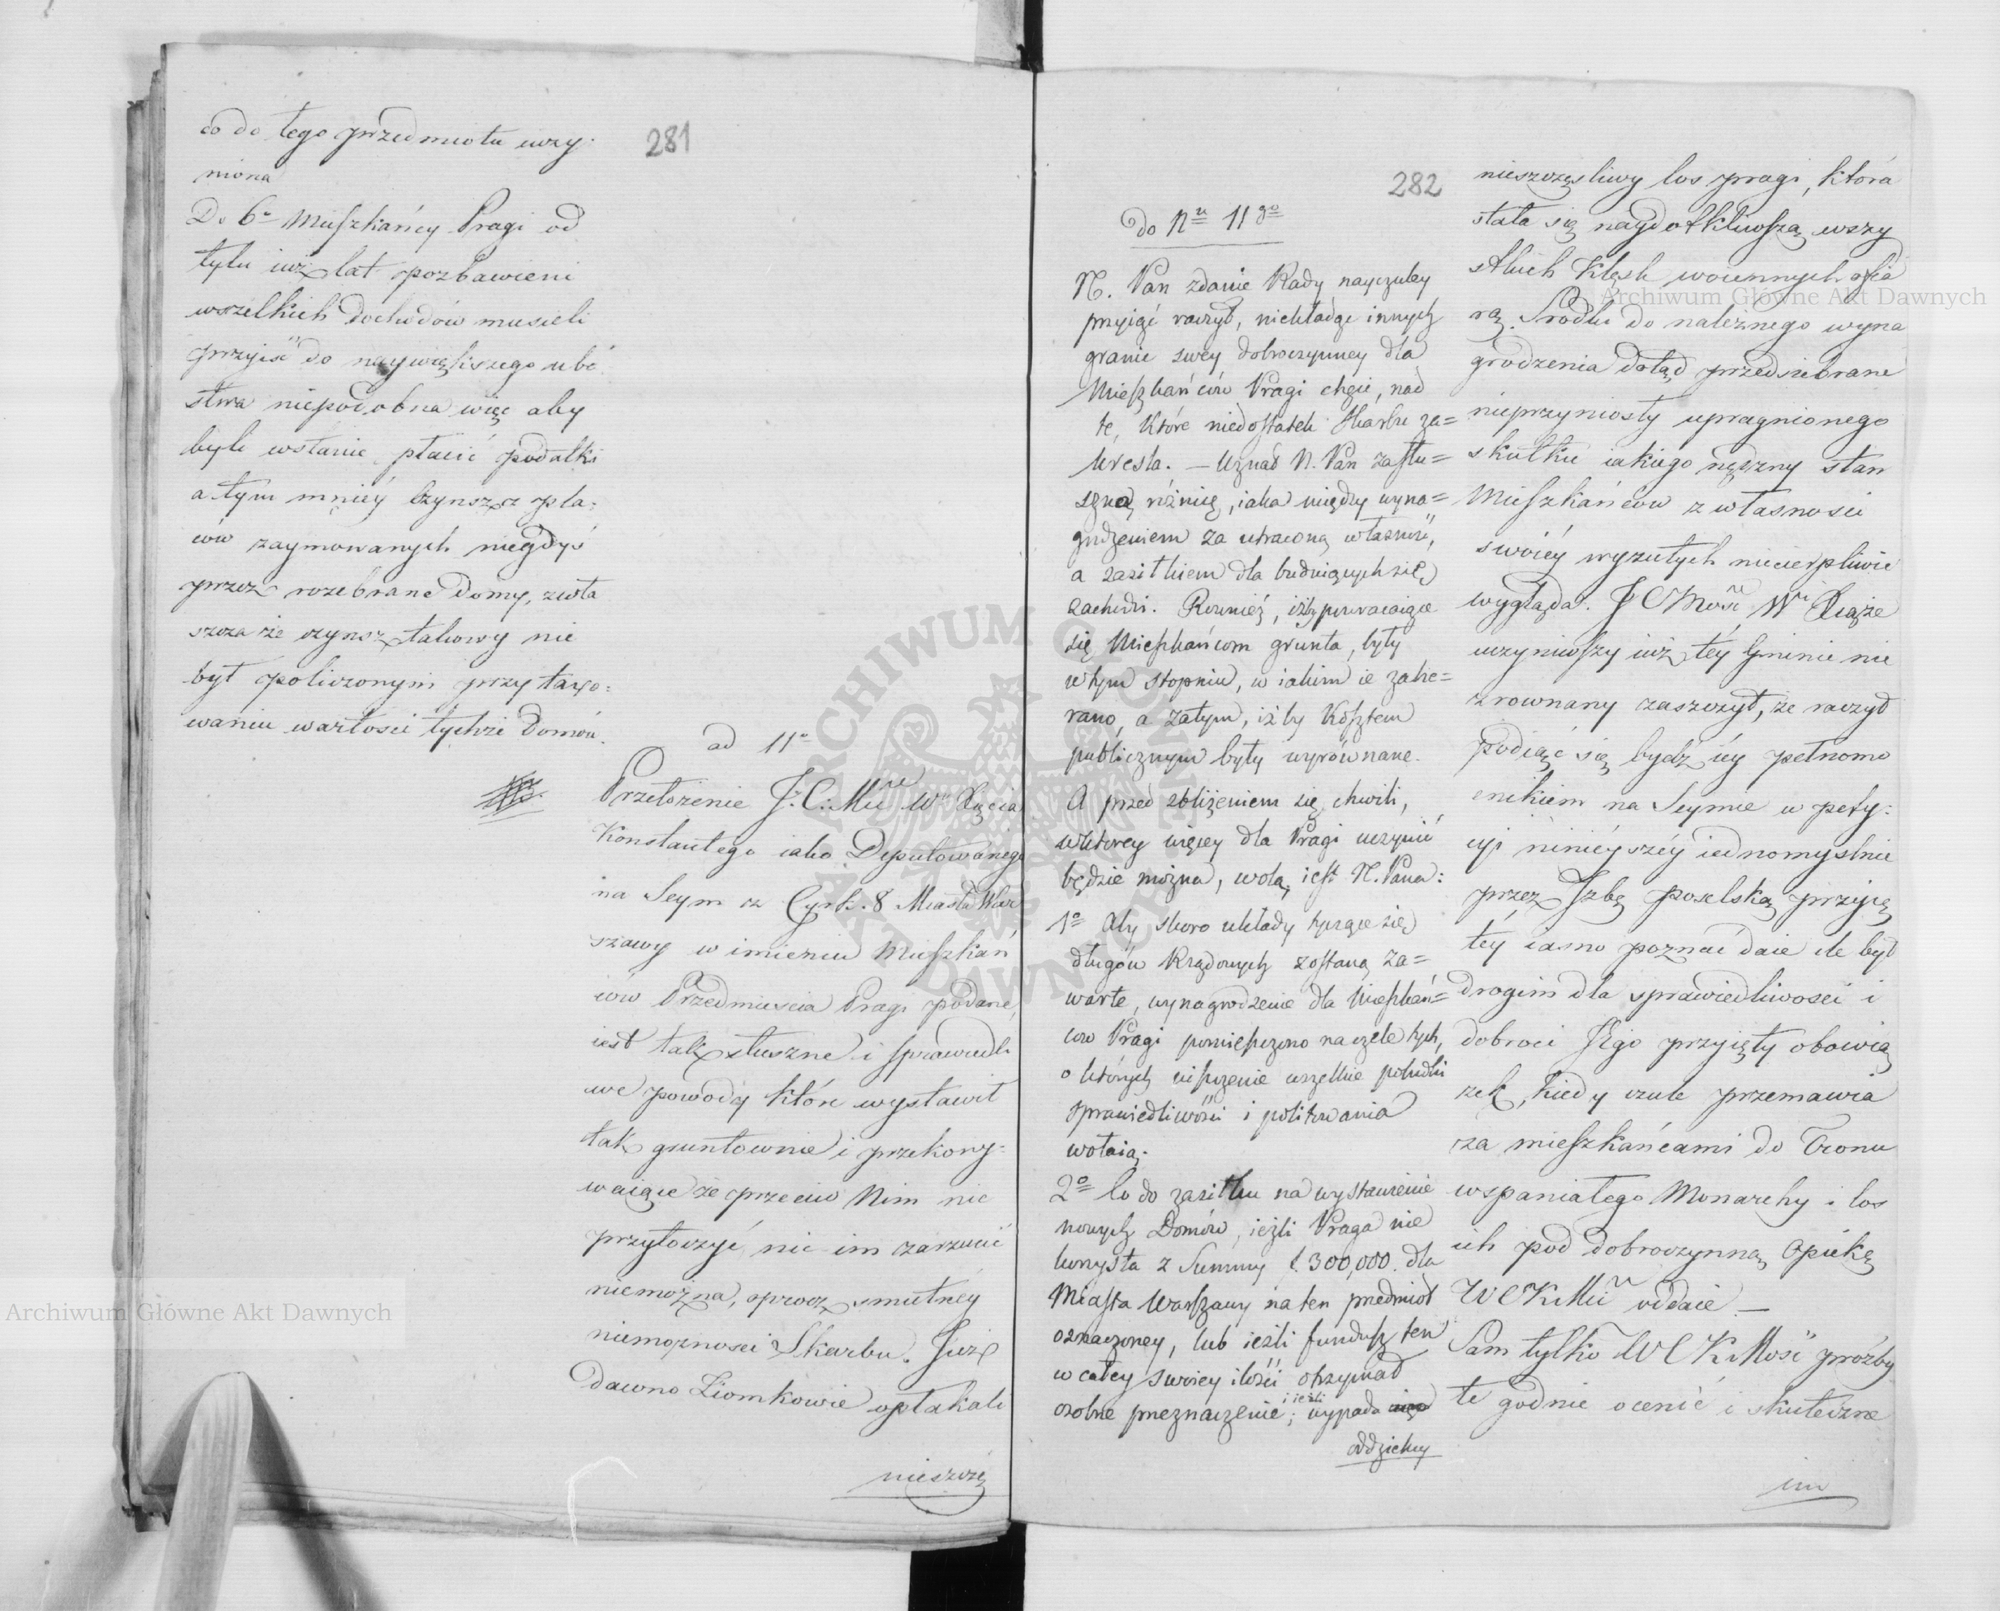 281
co do tego przedmiotu uczy-
niona
Do 6º Mieszkańcy Pragi od
tylu iuż lat pozbawieni
wszelkich dochodów musieli
przyiść do naywiększego ubó
stwa niepodobna więc aby
byli wstanie płacić podatki
a tym mniéy Czynsz z pla-
ców zaymowanych niegdyś
przez rozebrane Domy, zwła
szcza że czynsz takowy nie
był policzonym przy taxo-
waniu wartości tychże Domów.
ad 11º
Przełożenie J. C. Mci Wgo Xięcia
Konstantego iako Deputowanego
na Seym z Cyrk. 8 Miasta War
szawy w imieniu Mieszkań
ców Przedmieścia Pragi podane,
iest tak słuszne i sprawiedli
we powody które wystawił
tak gruntownie i przekony-
waiące że przeciw Nim nic
przytoczyć, nic im zarzucić
niemożna, oprócz smutnéy
niemożności Skarbu. Już
dawno Ziomkowie opłakali
nieszczę
282
do Nru 11go
N. Pan zdanie Rady nayczuley
przyiąć raczył, niekładąc innych
granic swey dobroczynney dla
Mieszkańców Pragi chęci, nad
te, które niedostatek Skarbu za=
kreśla. – Uznał N. Pan zasłu=
szną różnicę, iaka między wyna=
grodzeniem za utraconą własność,
a zasiłkiem dla buduiących się
zachodzi. Rownież, iżby powracaiące
się Mieszkańcom grunta, były
w tym stopniu, w iakim ie zabie=
rano, a zatym, iżby Kosztem
publicznym były wyrównane.
A przed zbliżeniem się chwili,
wktorey więcey dla Pragi uczynić
będzie można, wolą iest N. Pana:
1º Aby skoro układy tyczące się
długów Rządowych zostaną za=
warte, wynagrodzenie dla Mieszkań=
ców Pragi pomieszczono na czele tych,
o których uiszczenie wszelkie pobudki
sprawiedliwości i politowania
wołaią.
2º Co do zasiłku na wystawienie
nowych Domów, ieżli Praga nie
korzysta z Summy f. 300,000. dla
Miasta Warszawy na ten przedmiot
oznaczoney, lub ieżli fundusz ten
w całey swoiey ilości otrzymał
osobne przeznaczenie; i ieżli wypada
oddzielny
nieszczęśliwy los Pragi, która
stała się naydotkliwszą wszy
stkich Klęsk woiennych ofia
rą. Srodki do należnego wyna
grodzenia dotąd przedsiebrane
nieprzyniosły upragnionego
skutku iakiego nędzny stan
Mieszkańców z własności
swoiéy wyzutych niecierpliwie
wygląda. J C Mość Wi Xiąże
uczyniwszy iuż téy Gminie nie
zrownany zaszczyt, że raczył
podiąć się bydź iéy pełnomo
cnikiem na Seymie w pety-
cyi ninieyszéy iednomyślnie
przez Izbę Poselską przyię
téy iasno poznać daie ile był
drogim dla sprawiedliwości i
dobroci Jego przyięty obowią
zek, kiedy czule przemawia
za mieszkańcami do Tronu
wspaniałego Monarchy i los
ich pod dobroczynną Opiekę
W C K Mci oddaie —
Sam tylko W C K Mość prożby
te godnie ocenić i skuteczne
im
Archiwum Główne Akt Dawnych
Archiwum Główne Akt Dawnych
ARCHIWUM GŁÓWNE AKT DAWNYCH